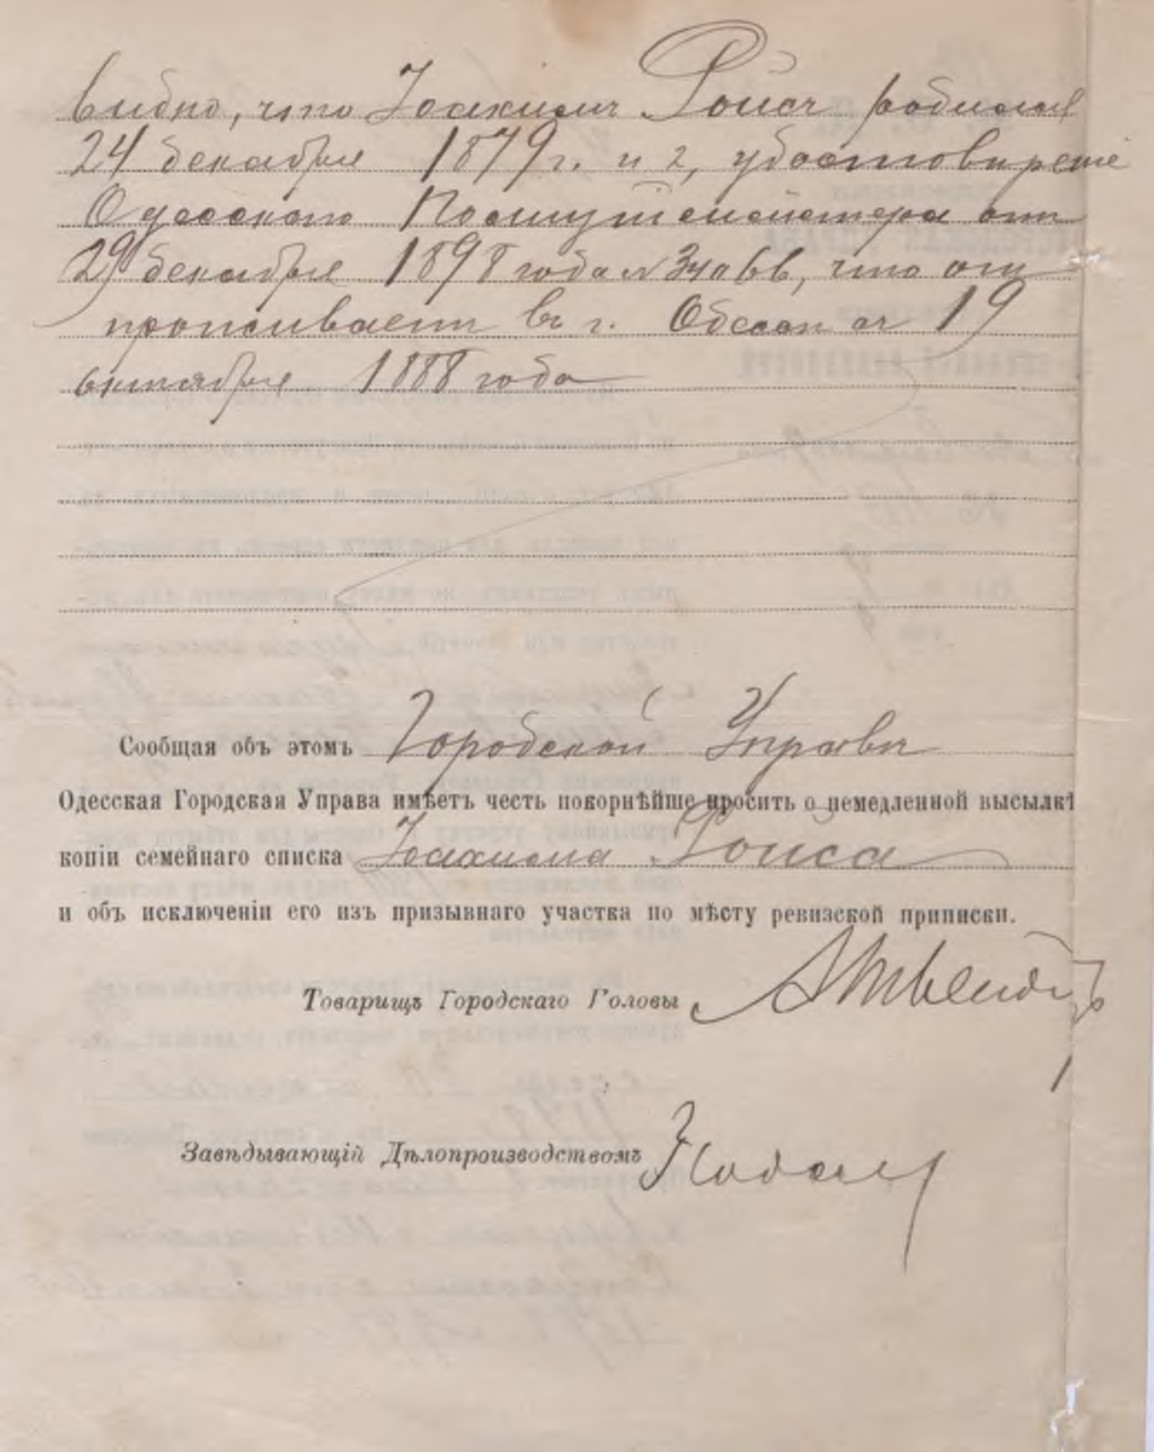 видно, что Іоахимъ Ройсъ родился
24 декабря 1879 г. и 2, удостовѣреніе
Одесскаго Полицiймейстера отъ
29 декабря 1898 года №, что онъ
проживаетъ въ г. Одессѣ съ 19
октября 1888 года
Сообщая объ этомъ Городской Управѣ
Одесская Городская Управа имѣетъ честь покорнѣйше просить о немедленной высылкѣ
копіи семейнаго списка Іоахима Ройса
и объ исключеніи его изъ призывнаго участка по мѣсту ревизской приписки.
Товарищъ Городскаго Головы
Завѣдывающій Дѣлопроизводствомъ